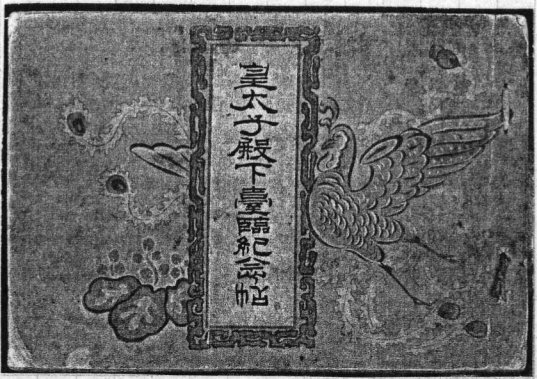 皇太子殿下臺臨紀念帖